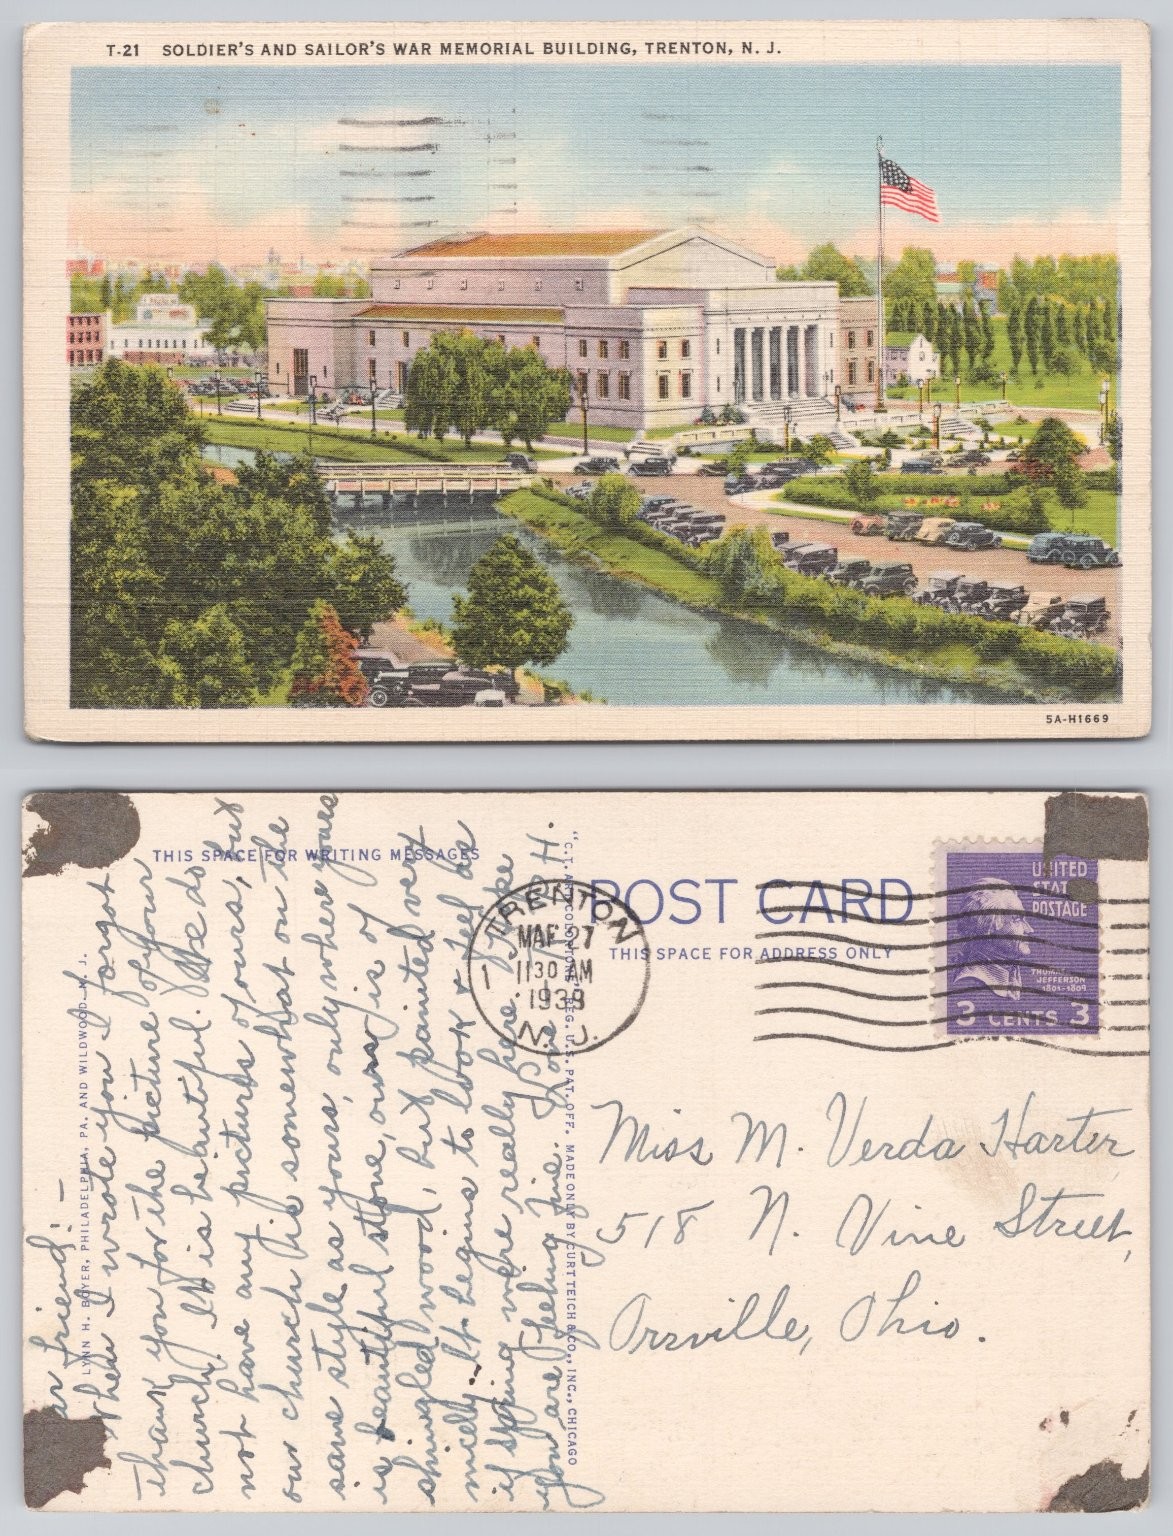 T-21 SOLDIER'S AND SAILOR'S WAR MEMORIAL BUILDING, TRENTON, N. J.
5A-H1669
THIS SPACE FOR WRITING MESSAGES
LYNN H. BOYER, PHILADELPHIA, PA. AND WILDWOOD, N. J.
ar friend: —
When I wrote you I forgot
thank you for the picture of your
church. It is beautiful. We do
not have any pictures of yours, but
our church is somewhat on the
same style as yours, only where yours
is beautiful stone, ours is of
shingled wood, but painted very
nicely. It begins to look & feel as
if spring were really here. Hope
you are feeling fine. Love H.
"C.T. ART-COLORTONE" REG. U.S. PAT. OFF. MADE ONLY BY CURT TEICH & CO., INC., CHICAGO
POST CARD
THIS SPACE FOR ADDRESS ONLY
TRENTON
MAR 27
1130 AM
1939
N. J.
1
UNITED
STAT
POSTAGE
THOMAS
JEFFERSON
1801-1809
3 CENTS 3
Miss M. Verda Harter
518 N. Vine Street,
Orrville, Ohio.